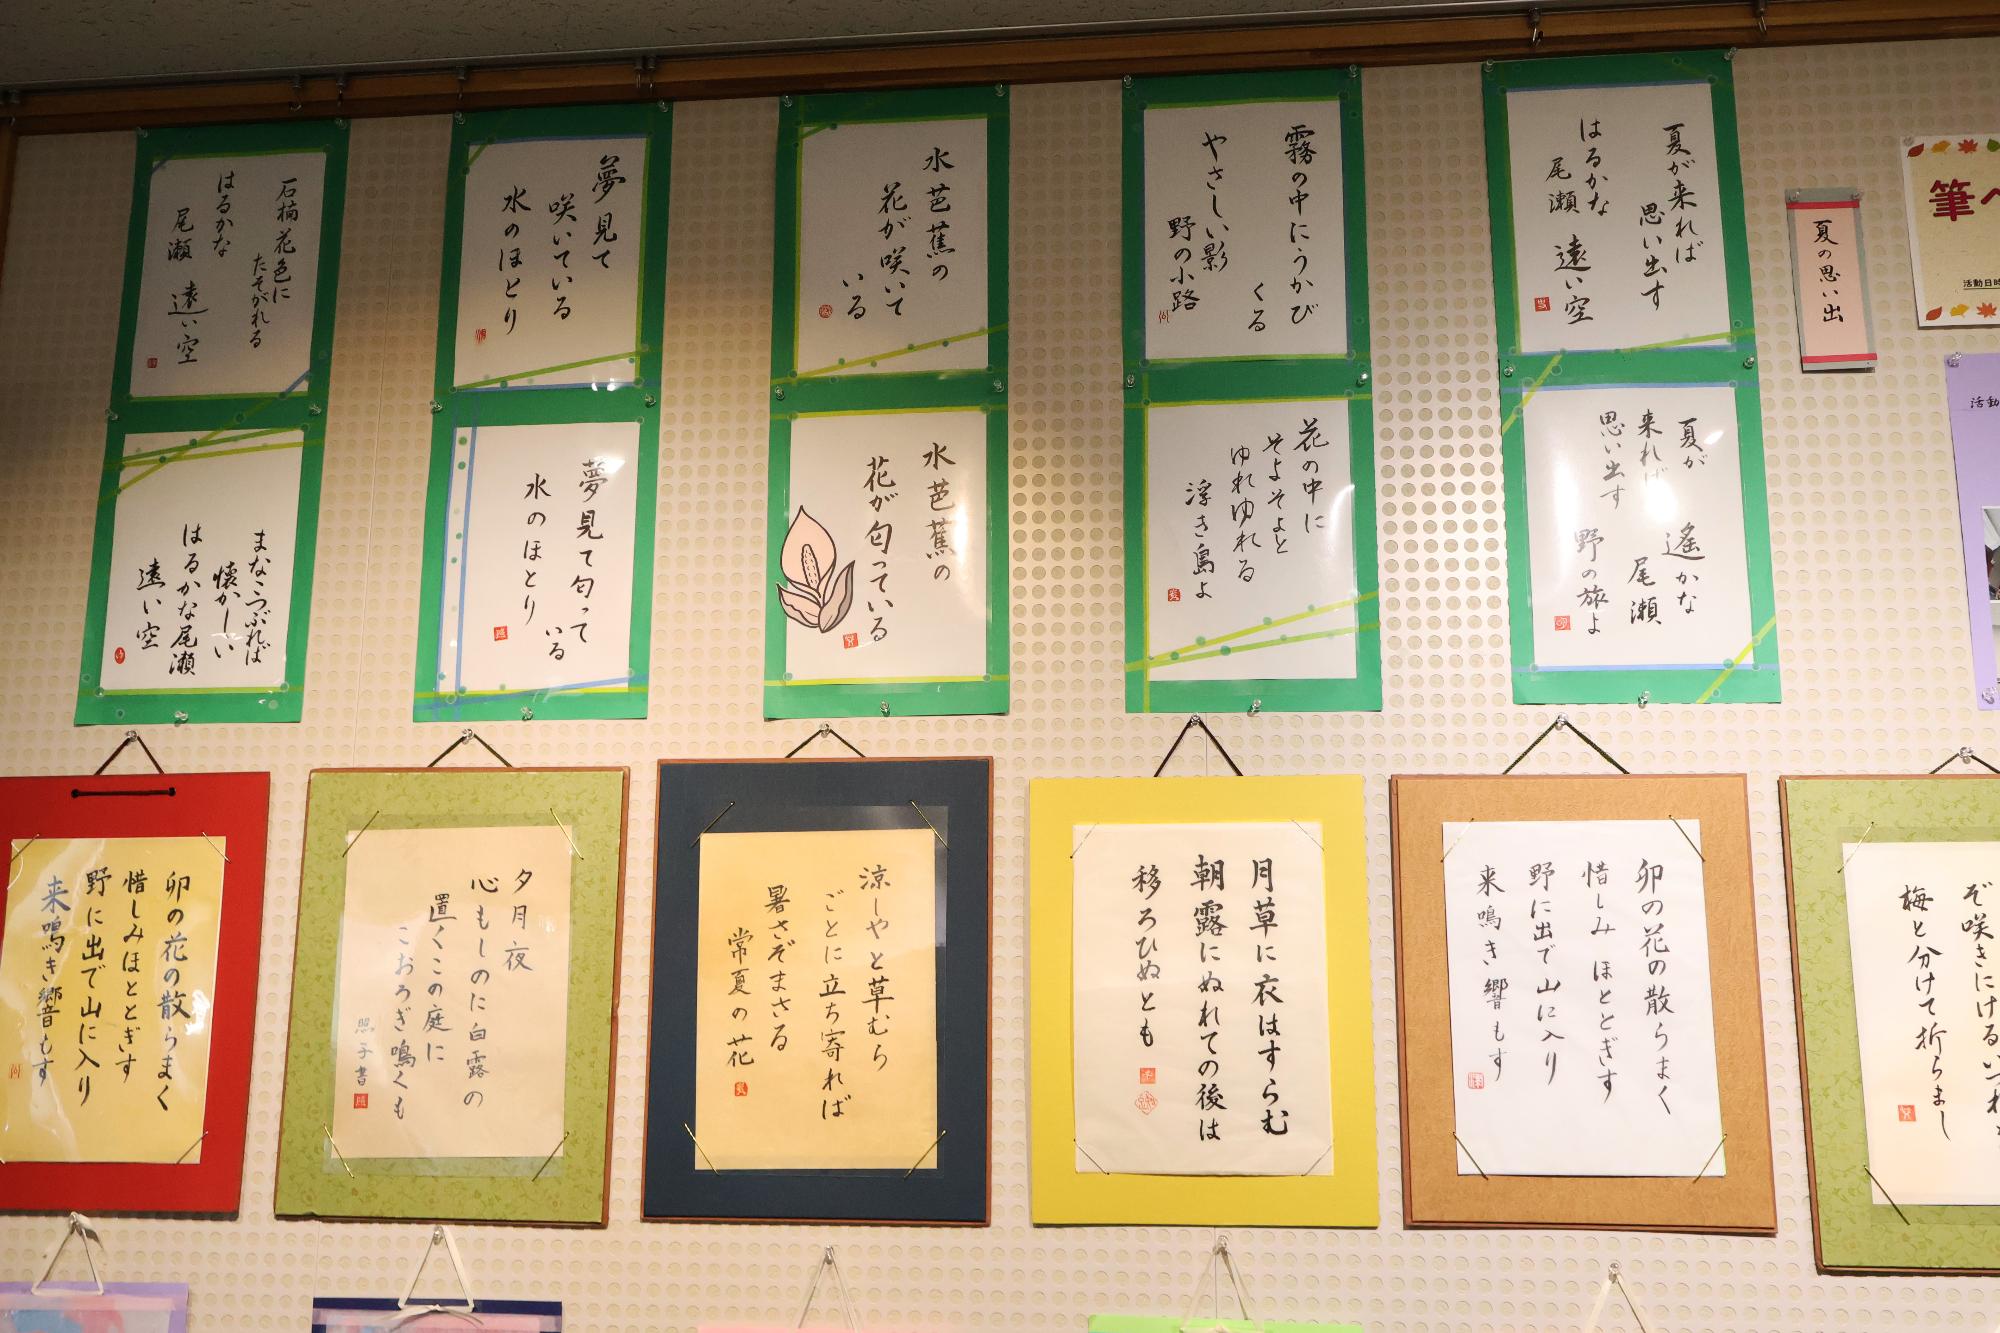 夏の思い出
筆
活動日時
活動
夏が来れば
思い出す
はるかな
尾瀬 遠い空
霧の中にうかび
くる
やさしい影
野の小路
水芭蕉の
花が咲いて
いる
夢見て
咲いている
水のほとり
石楠花色に
たそがれる
はるかな
尾瀬 遠い空
夏が
来れば
思い出す
遙かな
尾瀬
野の旅よ
花の中に
そよそよと
ゆれゆれる
浮き島よ
水芭蕉の
花が匂っている
夢見て匂って
いる
水のほとり
まなこつぶれば
懐かしい
はるかな尾瀬
遠い空
ぞ咲きにける
梅と分けて折らまし
卯の花の散らまく
惜しみ ほととぎす
野に出で山に入り
来鳴き響もす
月草に衣はすらむ
朝露にぬれての後は
移ろひぬとも
涼しやと草むら
ごとに立ち寄れば
暑さぞまさる
常夏の花
夕月夜
心もしのに白露の
置くこの庭に
こおろぎ鳴くも
照子書
卯の花の散らまく
惜しみほととぎす
野に出で山に入り
来鳴き響もす